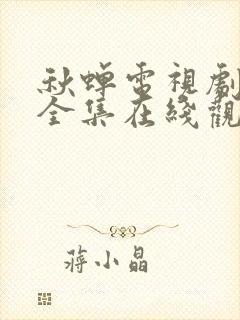 秋蟬電視劇
全集在綫觀
蔣小晶